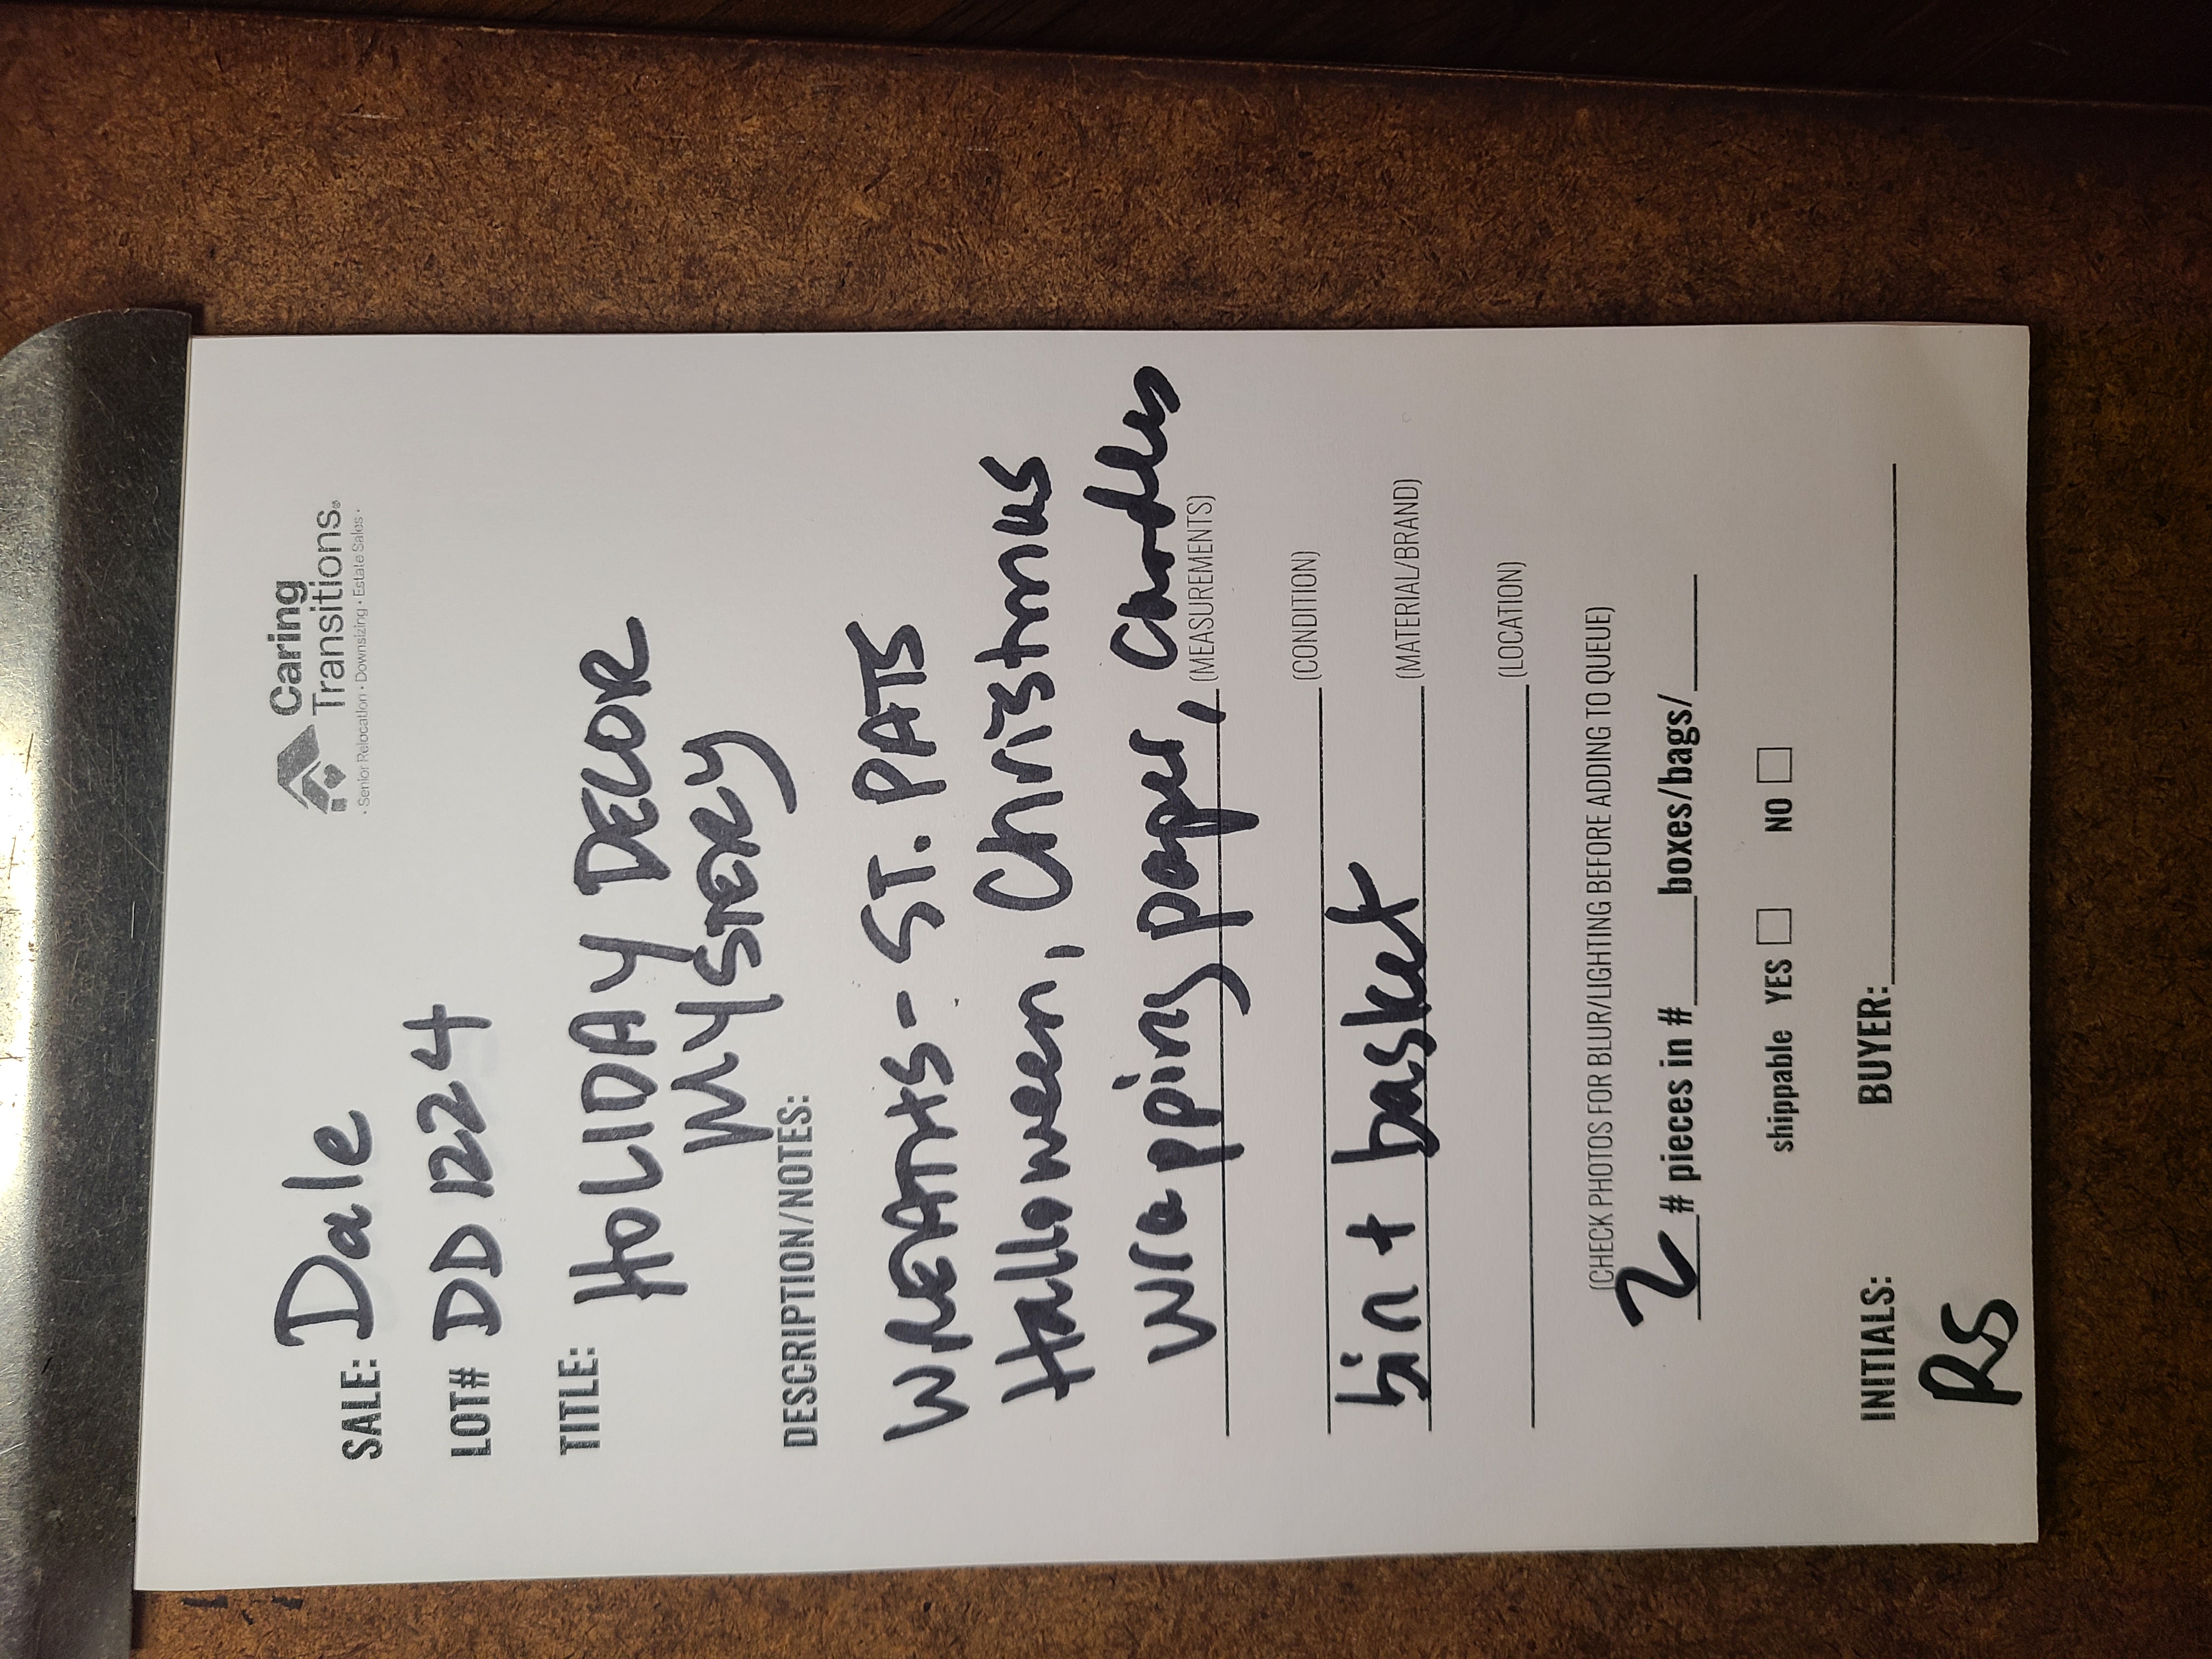 Caring
Transitions®
· Senior Relocation · Downsizing · Estate Sales ·
SALE: Dale
LOT# DD 1224
TITLE: HOLIDAY DECOR
MYSTERY
DESCRIPTION/NOTES:
WREATHS - ST. PATS
Halloween, Christmas
Wrapping paper, Candles
(MEASUREMENTS)
(CONDITION)
bin + basket (MATERIAL/BRAND)
(LOCATION)
(CHECK PHOTOS FOR BLUR/LIGHTING BEFORE ADDING TO QUEUE)
2 # pieces in # ____ boxes/bags/____
shippable YES □ NO □
INITIALS: BUYER:____
RS